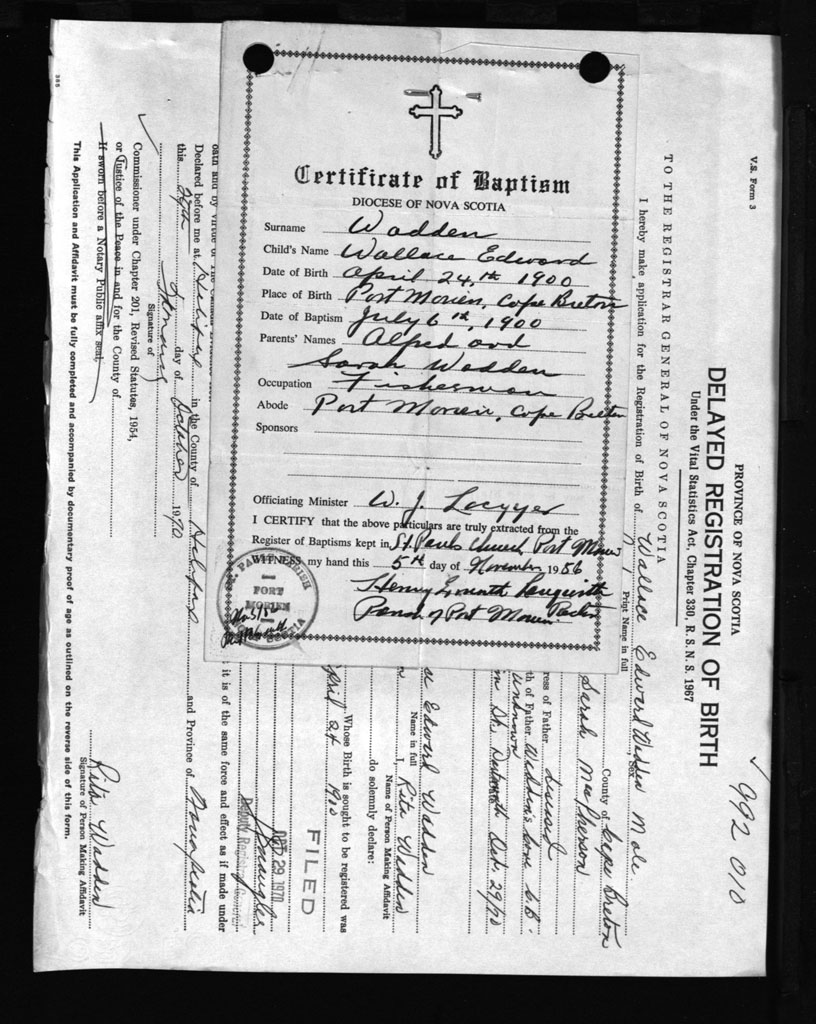 Certificate of Baptism
DIOCESE OF NOVA SCOTIA
Surname Wadden
Child's Name Wallace Edward
Date of Birth April 24,th 1900
Place of Birth Port Morien, Cape Breton
Date of Baptism July 6th, 1900
Parents' Names Alfred and
Sarah Wadden
Occupation Fisherman
Abode Port Morien, Cape Breton
Sponsors
Officiating Minister W. J. Locyyer
I CERTIFY that the above particulars are truly extracted from the
Register of Baptisms kept in St. Pauls Church, Port Morien
WITNESS my hand this 5th day of November 1956
Henry
Parish of Port Morien. Rector
PARISH
PORT
MORIEN
V.S. Form 3
992 010
PROVINCE OF NOVA SCOTIA
DELAYED REGISTRATION OF BIRTH
Under the Vital Statistics Act, Chapter 330, R. S. N. S. 1967
TO THE REGISTRAR GENERAL OF NOVA SCOTIA
I hereby make application for the Registration of Birth of Wallace Edward Wadden Sex Male
Print Name in full
County of Cape Breton
Sarah MacPherson
ress of Father deceased
th of Father Wadden's Cove C.B.
unknown
Dartmouth Oct. 29/70
Edward Wadden
Name in full
I, Rita Wadden
Name of Person Making Affidavit
do solemnly declare:
Whose Birth is sought to be registered was
April 24 1900
FILED
OCT 29 1970
Deputy Registrar General
oath and by virtue of
it is of the same force and effect as if made under
Declared before me at Halifax in the County of Halifax and Province of Nova Scotia
this 29th day of October 1970
Signature of
Commissioner under Chapter 201, Revised Statutes, 1954,
or Justice of the Peace in and for the County of
If sworn before a Notary Public affix seal.
Rita Wadden
Signature of Person Making Affidavit
This Application and Affidavit must be fully completed and accompanied by documentary proof of age as outlined on the reverse side of this form.